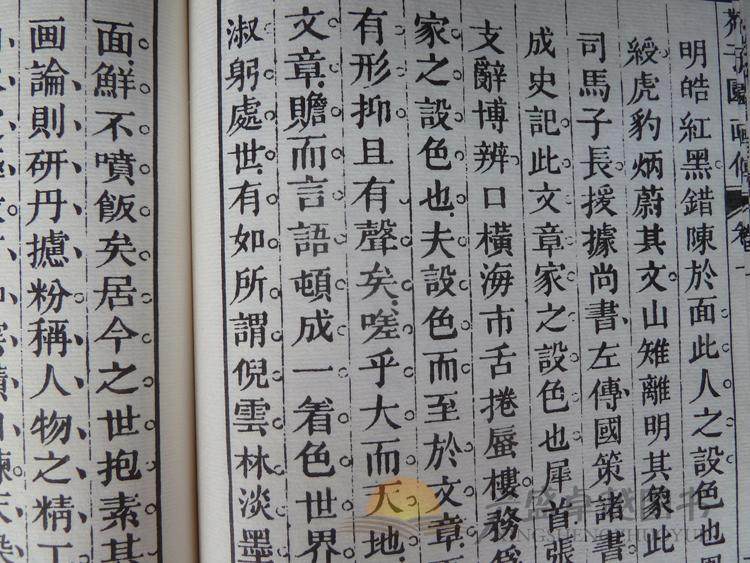 芥子園画傳 卷一
明皓紅黑錯陳於面此人之設色也
綬虎豹炳蔚其文山雉離明其象此
司馬子長援據尚書左傳國策諸書
成史記此文章家之設色也犀首張
支辭博辨口橫海市舌捲蜃樓務爲
家之設色也夫設色而至於文章
有形抑且有聲矣嗟乎大而天地
文章贍而言語頓成一着色世界
淑躬處世有如所謂倪雲林淡墨
面鮮不噴飯矣居今之世抱素其
画論則研丹攄粉稱人物之精工